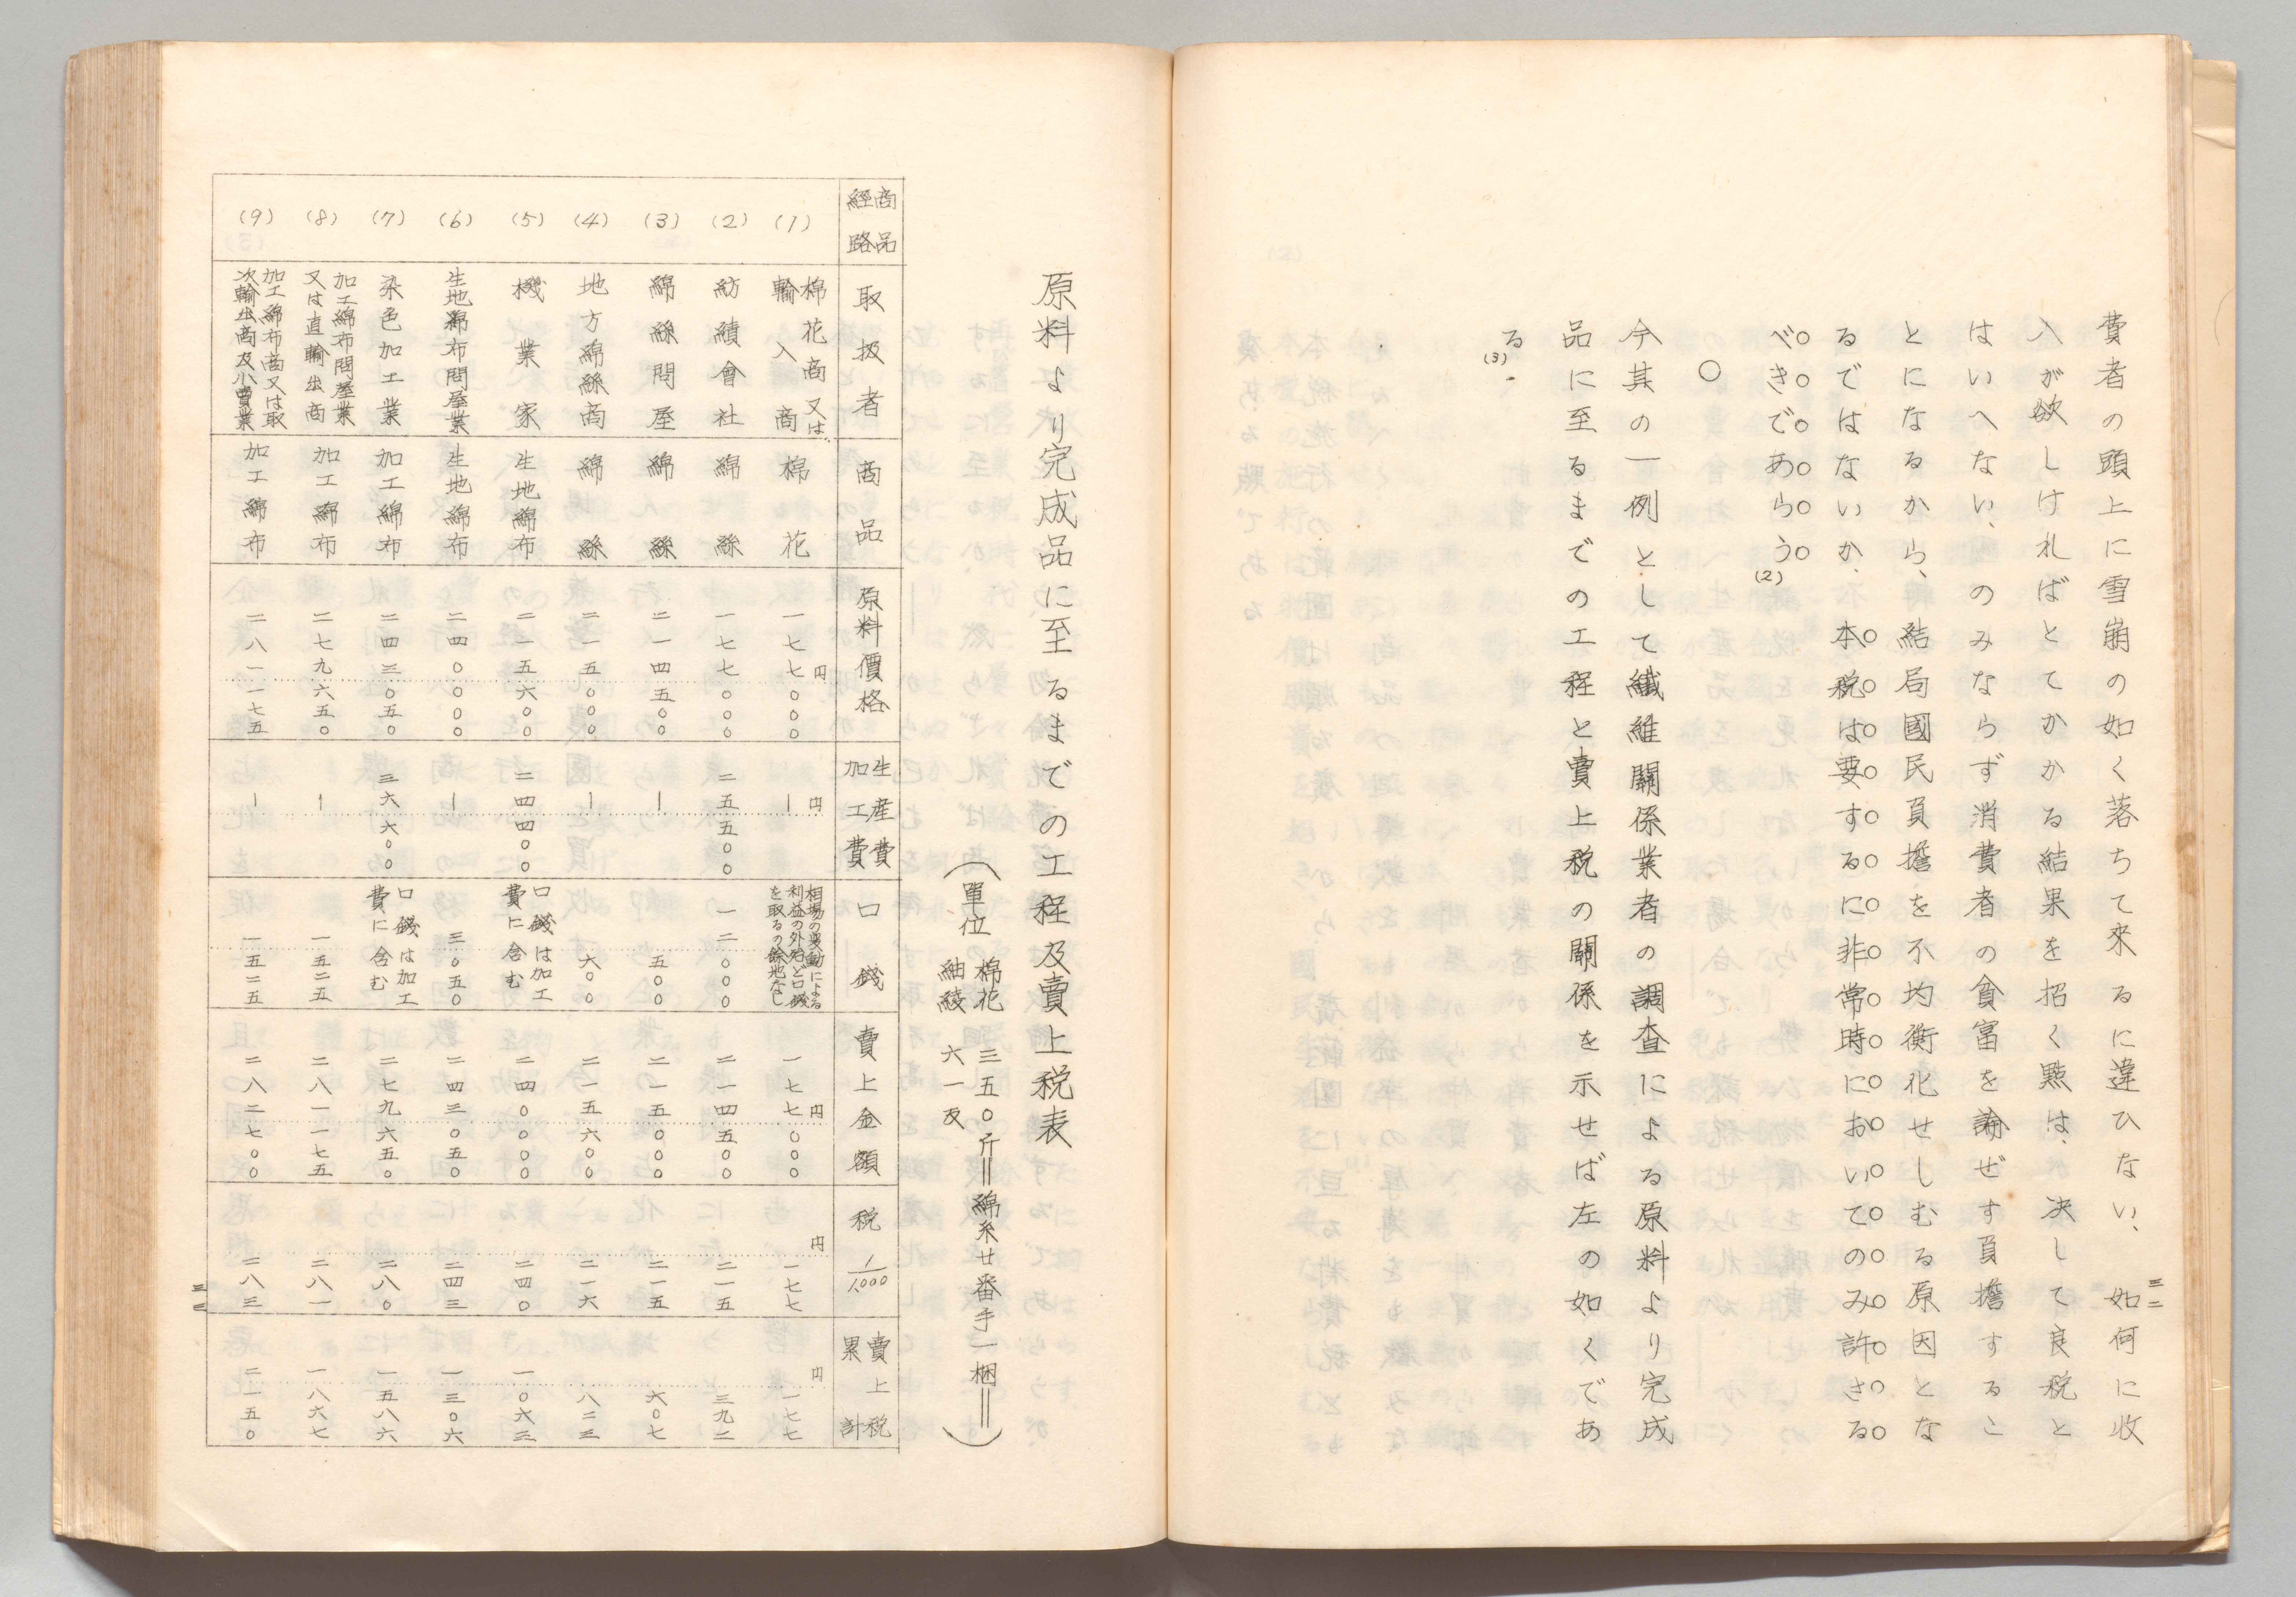 三二
費者の頭上に雪崩の如く落ちて來るに違ひない、如何に收
入が欲しければとてかかる結果を招く點は、決して良税と
はいへない、のみならず消費者の貧富を論ぜず負擔するこ
とになるから、結局國民負擔を不均衡化せしむる原因とな
るではないか、本税は要するに非常時においてのみ許さる
べきであらう(2)
○
今其の一例として纖維關係業者の調査による原料より完成
品に至るまでの工程と賣上税の關係を示せば左の如くであ
る(3)。
原料より完成品に至るまでの工程及賣上税表
(單位 棉花 三五〇斤=綿糸廿番手一梱=
紬綾 六一反)
商品經路 取扱者 商品 原料價格 生産費加工費 口錢 賣上金額 税 1/1,000 賣上税累計
(1) 棉花商又は輸入商 棉花 一七七円〇〇〇 円― 相場の異動による利益の外殆ど口錢を取るの餘地なし 一七七円〇〇〇 円一七七 円一七七
(2) 紡績會社 綿絲 一七七〇〇〇 二五五〇〇 一二〇〇〇 二一四五〇〇 二一五 三九二
(3) 綿絲問屋 綿絲 二一四五〇〇 ― 五〇〇 二一五〇〇〇 二一五 六〇七
(4) 地方綿絲商 綿絲 二一五〇〇〇 ― 六〇〇 二一五六〇〇 二一六 八二三
(5) 機業家 生地綿布 二一五六〇〇 二四四〇〇 口錢は加工費に含む 二四〇〇〇〇 二四〇 一〇六三
(6) 生地綿布問屋業 生地綿布 二四〇〇〇〇 ― 三〇五〇 二四三〇五〇 二四三 一三〇六
(7) 染色加工業 加工綿布 二四三〇五〇 三六六〇〇 口錢は加工費に含む 二七九六五〇 二八〇 一五八六
(8) 加工綿布問屋業又は直輸出商 加工綿布 二七九六五〇 ― 一五二五 二八一一七五 二八一 一八六七
(9) 加工綿布商又は取次輸出商及小賣業 加工綿布 二八一一七五 ― 一五二五 二八二七〇〇 二八三 二一五〇
三三